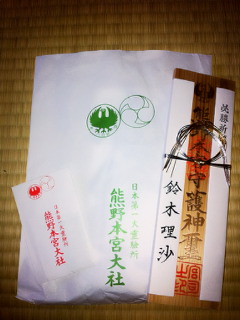 日本第一大霊験所
熊野本宮大社
日本第一大霊験所
熊野本宮大社
守護神璽
鈴木理沙